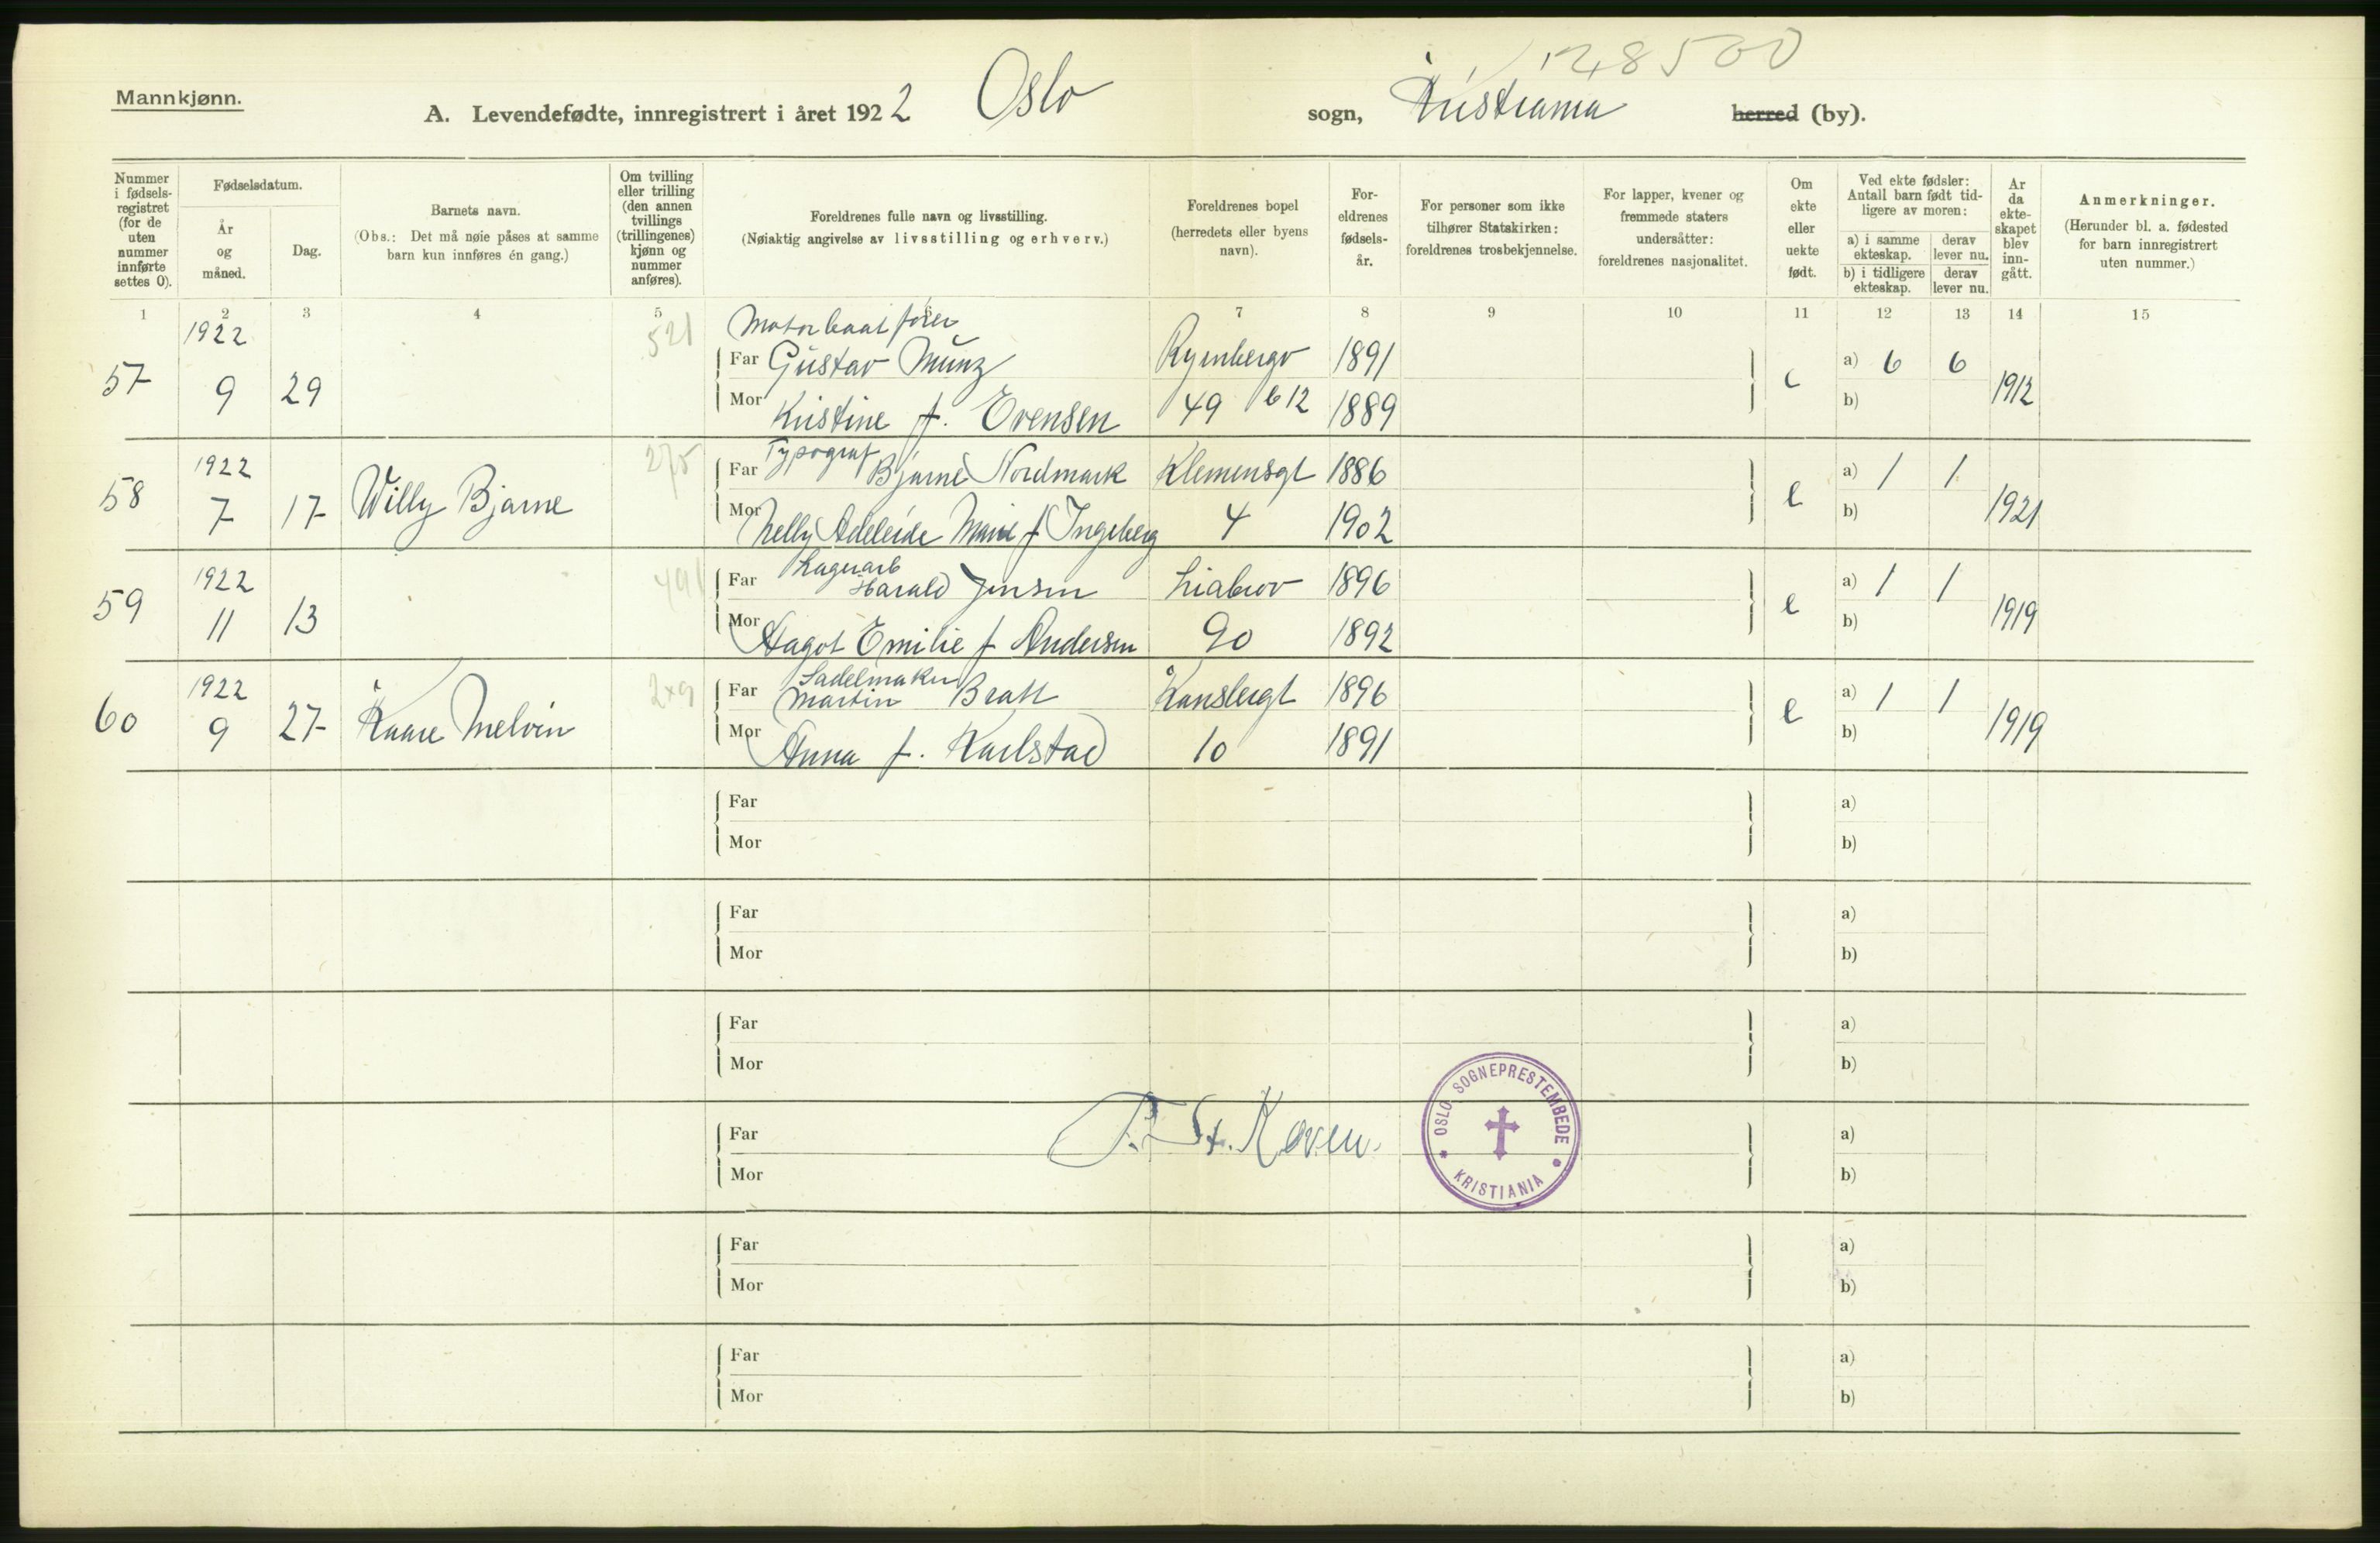 128500
Mannkjønn.
A. Levendefødte, innregistrert i året 1922 Oslo sogn, Kristiania herred (by).
Nummer i fødsels-registret (for de uten nummer innførte settes 0).
Fødselsdatum.
År og måned.
Dag.
Barnets navn.
(Obs.: Det må nøie påses at samme barn kun innføres én gang.)
Om tvilling eller trilling (den annen tvillings (trillingenes) kjønn og nummer anføres).
Foreldrenes fulle navn og livsstilling.
(Nøiaktig angivelse av livsstilling og erhverv.)
Foreldrenes bopel (herredets eller byens navn).
For-eldrenes fødsels-år.
For personer som ikke tilhører Statskirken: foreldrenes trosbekjennelse.
For lapper, kvener og fremmede staters undersåtter: foreldrenes nasjonalitet.
Om ekte eller uekte født.
Ved ekte fødsler: Antall barn født tid-ligere av moren:
a) i samme ekteskap. derav lever nu.
b) i tidligere ekteskap. derav lever nu.
År da ekte-skapet blev inn-gått.
Anmerkninger.
(Herunder bl. a. fødested for barn innregistrert uten nummer.)
1 2 3 4 5 6 7 8 9 10 11 12 13 14 15
1922 521 Motorbaatfører
Far Gustav Munz Ryenbergv 1891 a) 6 6
57 9 29 e 1912
Mor Kristine f. Evensen 49 b12 1889 b)
1922 275 Typograf
Far Bjarne Nordmark Klemensgt 1886 a) 1 1
58 7 17 Willy Bjarne e 1921
Mor Nelly Adeleide Marie f Ingeberg 4 1902 b)
1922 491 Lagerarb
Far Harald Jensen Liabrov 1896 a) 1 1
59 11 13 e 1919
Mor Aagot Emilie f Andersen 90 1892 b)
1922 Sadelmaker
Far Martin Bratt Kanslergt 1896 a) 1 1
60 9 27 Kaare Melvin e 1919
Mor Anna f. Karlstad 10 1891 b)
Far a)
Mor b)
Far a)
Mor b)
Far a)
Mor b)
OSLO SOGNEPRESTEMBEDE
KRISTIANIA
Far a)
Mor b)
Far a)
Mor b)
Far a)
Mor b)